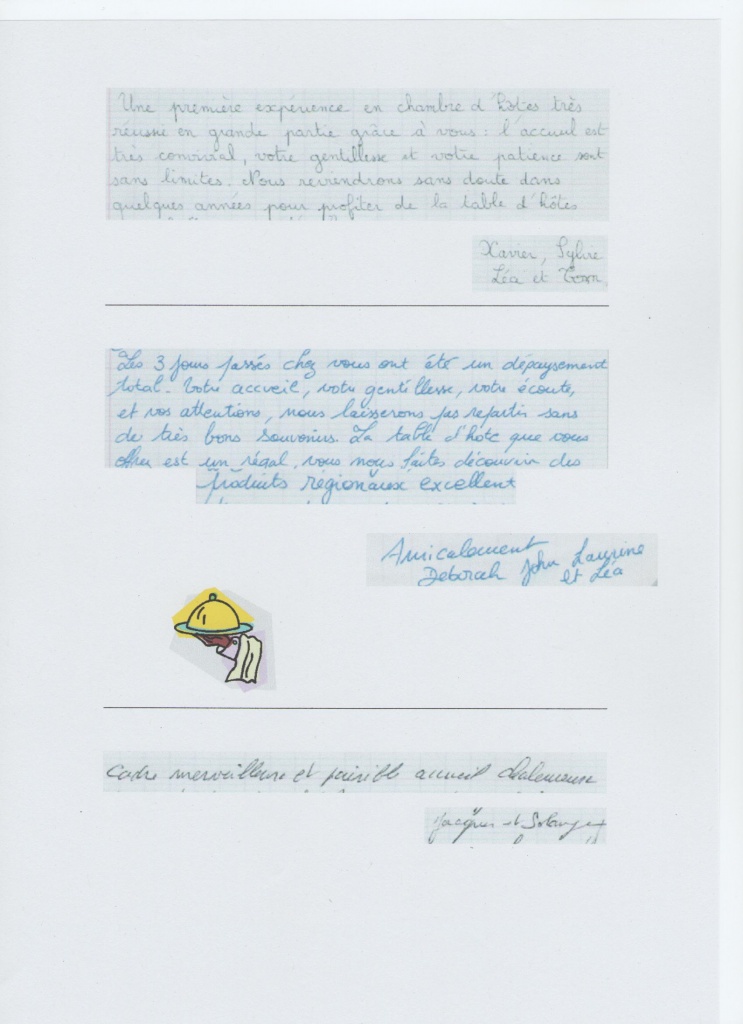 Une première expérience en chambre d'hôtes très
réussie en grande partie grâce à vous : l'accueil est
très convivial, votre gentillesse et votre patience sont
sans limites. Nous reviendrons sans doute dans
quelques années pour profiter de la table d'hôtes
Xavier, Sylvie
Léa et Tom
Les 3 jours passés chez vous ont été un dépaysement
total. Votre accueil, votre gentillesse, votre écoute,
et vos attentions, nous laisserons pas repartir sans
de très bons souvenirs. La table d'hôte que vous
offrez est un régal, vous nous faites découvrir des
produits régionaux excellent
Amicalement
Deborah John Laurine
et Léa
Cadre merveilleux et paisible accueil chaleureux
Jacques et Solange